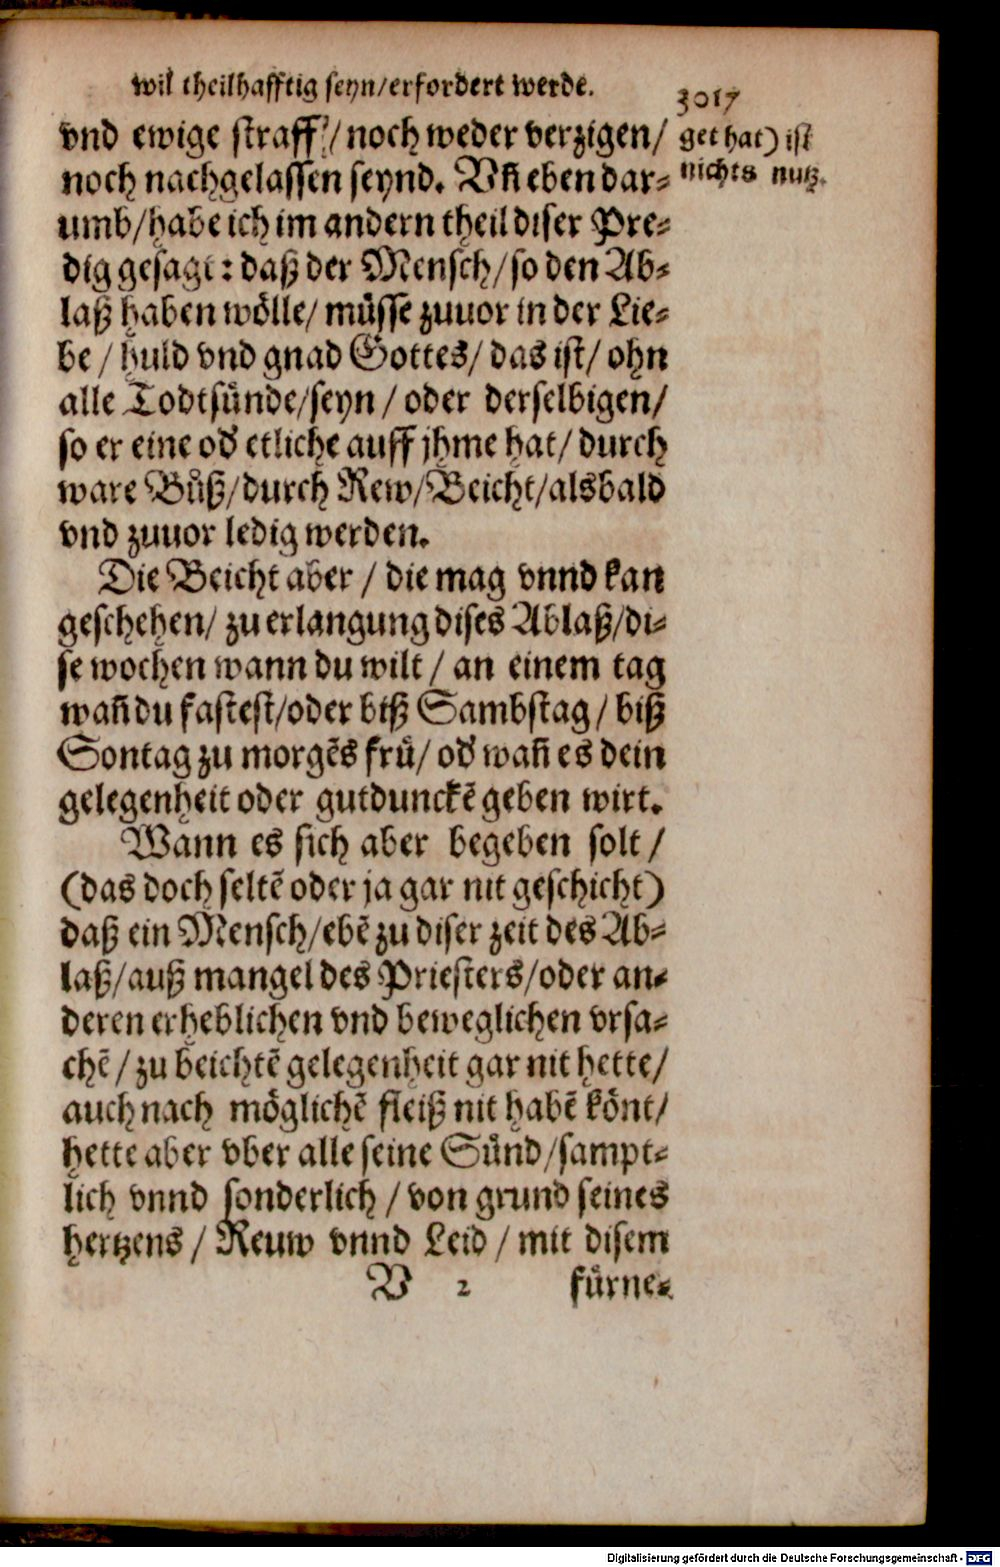 wil theilhafftig seyn/erfordert werde.
3017
vnd ewige straff/noch weder verzigen/
noch nachgelassen seynd. Vñ eben dar⸗
umb/habe ich im andern theil diser Pre⸗
dig gesagt: daß der Mensch/so den Ab⸗
laß haben wölle/ müsse zuuor in der Lie⸗
be/huld vnd gnad Gottes/ das ist/ ohn
alle Todtsünde/seyn/ oder derselbigen/
so er eine od' etliche auff jhme hat/ durch
ware Bůß/durch Rew/Beicht/alsbald
vnd zuuor ledig werden.
Die Beicht aber/ die mag vnnd kan
geschehen/ zu erlangung dises Ablaß/di⸗
se wochen wann du wilt/ an einem tag
wañ du fastest/oder biß Sambstag/ biß
Sontag zu morgẽs frů/ od' wañ es dein
gelegenheit oder gutdunckẽ geben wirt.
Wann es sich aber begeben solt/
(das doch seltẽ oder ja gar nit geschicht)
daß ein Mensch/ebẽ zu diser zeit des Ab⸗
laß/auß mangel des Priesters/oder an⸗
deren erheblichen vnd beweglichen vrsa⸗
chẽ/ zu beichtẽ gelegenheit gar nit hette/
auch nach möglichẽ fleiß nit habẽ könt/
hette aber vber alle seine Sünd/sampt⸗
lich vnnd sonderlich/ von grund seines
hertzens/ Reuw vnnd Leid/ mit disem
V 2 fürne⸗
get hat) ist
nichts nutz.
Digitalisierung gefördert durch die Deutsche Forschungsgemeinschaft - DFG